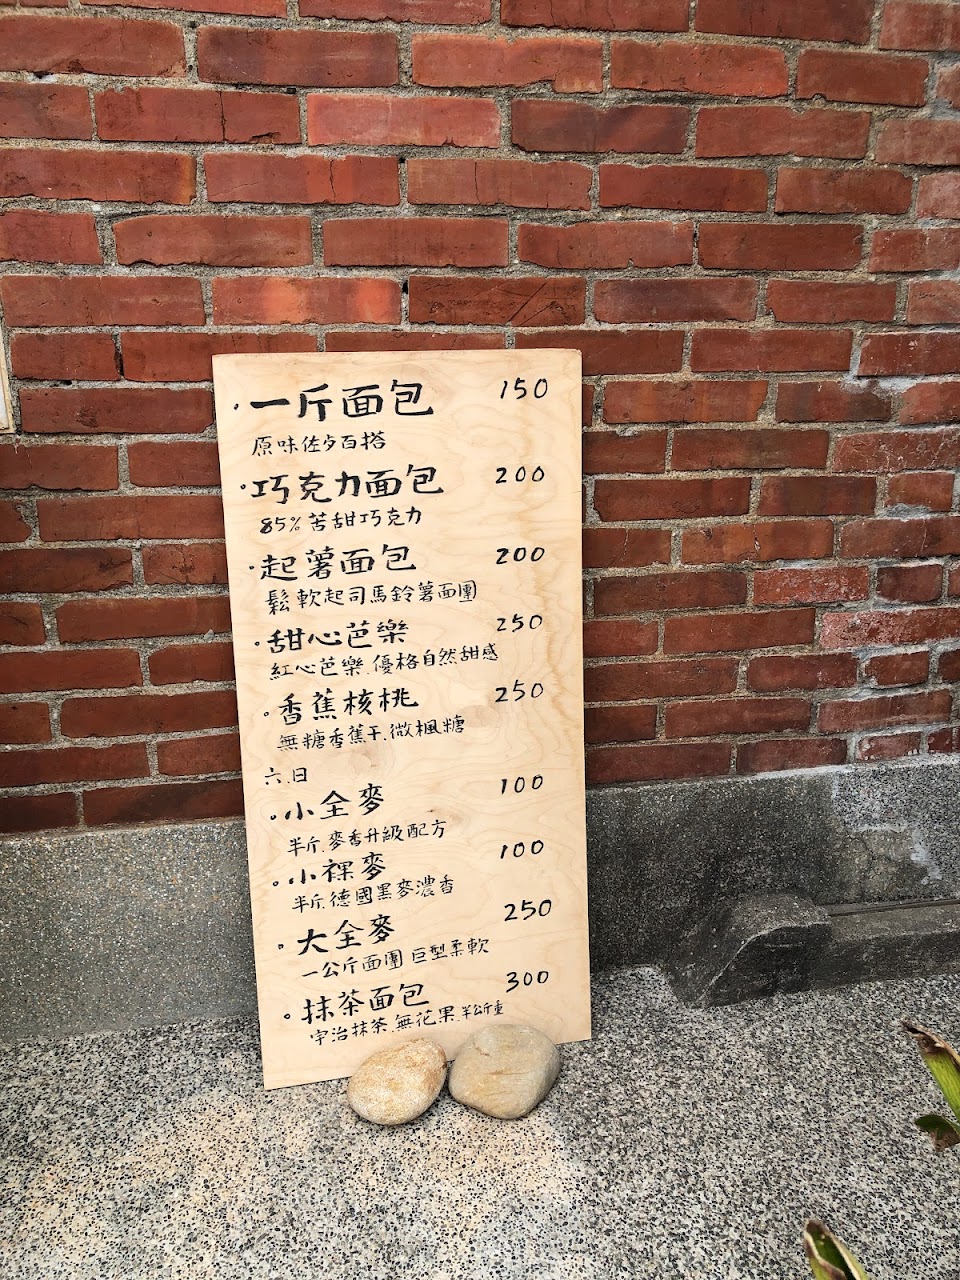 ·一斤面包 150
原味佐夕百搭
·巧克力面包 200
85% 苦甜巧克力
·起薯面包 200
鬆軟起司馬鈴薯面團
·甜心芭樂 250
紅心芭樂.優格自然甜感
·香蕉核桃 250
無糖香蕉干.微楓糖
六.日
·小全麥 100
半斤.麥香升級配方
·小裸麥 100
半斤.德國黑麥濃香
·大全麥 250
一公斤面團 巨型柔軟
·抹茶面包 300
宇治抹茶.無花果.半公斤重